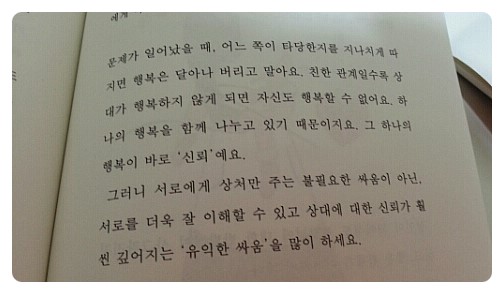 에게
문제가 일어났을 때, 어느 쪽이 타당한지를 지나치게 따
지면 행복은 달아나 버리고 말아요. 친한 관계일수록 상
대가 행복하지 않게 되면 자신도 행복할 수 없어요. 하
나의 행복을 함께 나누고 있기 때문이지요. 그 하나의
행복이 바로 ‘신뢰’예요.
그러니 서로에게 상처만 주는 불필요한 싸움이 아닌,
서로를 더욱 잘 이해할 수 있고 상대에 대한 신뢰가 훨
씬 깊어지는 ‘유익한 싸움’을 많이 하세요.